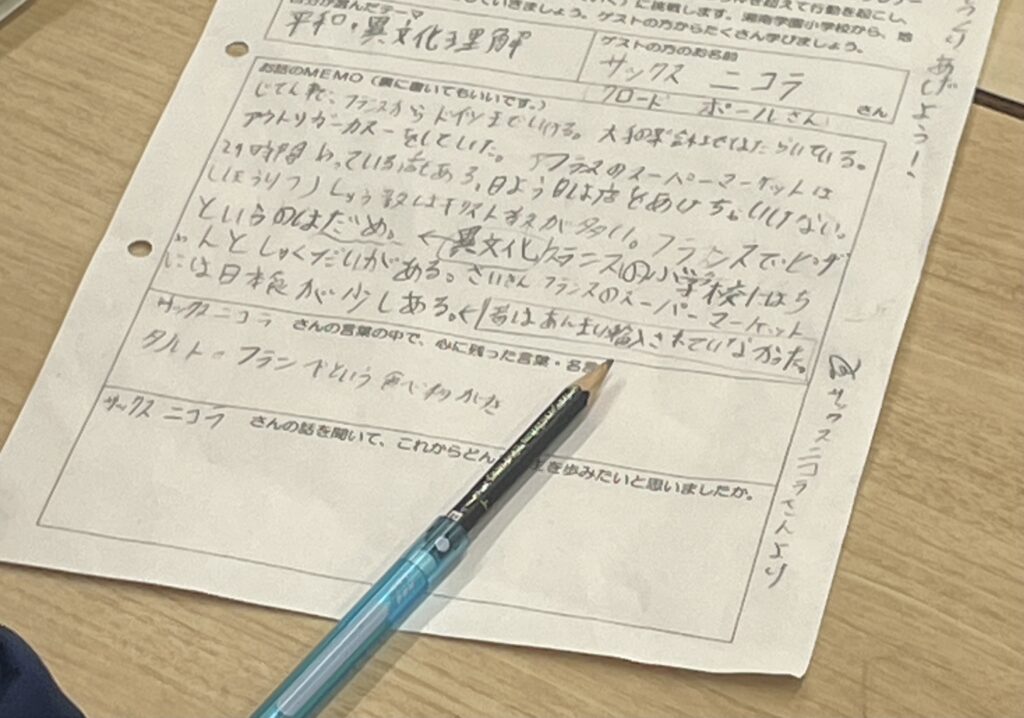 を超えて行動を起こし、
に挑戦します。湘南学園小学校から、地
していきましょう。ゲストの方からたくさん学びましょう。
自分が選んだテーマ
平和・異文化理解
ゲストの方のお名前
サックス ニコラ
クロード ポールさん
さん
お話のMEMO(裏に書いてもいいです。)
じてん車で、フランスからドイツまでいける。大和
アウトリガーカヌーをしていた。フランスのスーパーマーケットは
時間 っている店もある、日よう日は店をあけちゃいけない。
キリスト が多い。フランスでピザ
というのはだめ。←異文化 フランスの小学校にはち
ゃんとしゅくだいがある。さいきん フランスのスーパーマーケット
には日本食が少しある。← 昔はあんまり輸入されていなかった。
サックス ニコラ さんの言葉の中で、心に残った言葉・名言
タルト・フランベという食べ物がある
サックス ニコラ さんの話を聞いて、これからどん を歩みたいと思いましたか。
あげよう!
サックスニコラさんより